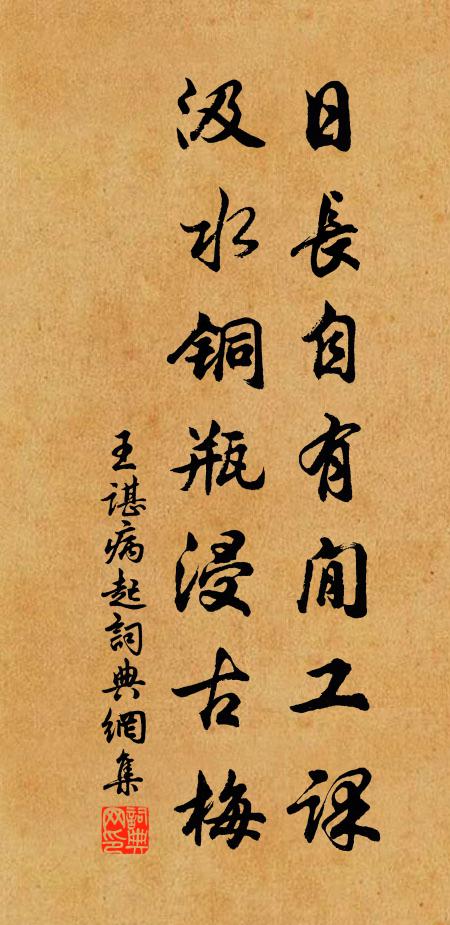 日長自有閒工課
汲水銅瓶浸古梅
王諶病起詞典網集
詞典網印